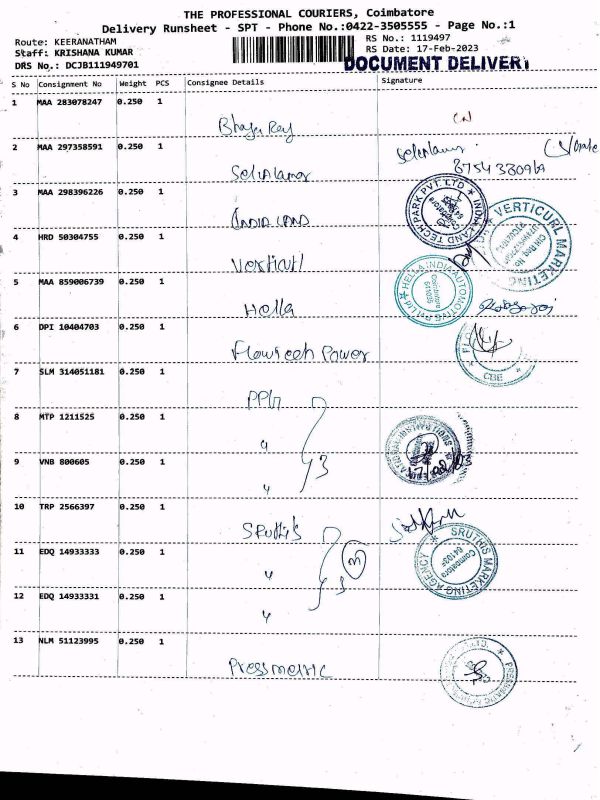 THE PROFESSIONAL COURIERS, Coimbatore
Delivery Runsheet - SPT - Phone No.:0422-3505555 - Page No.:1
Route: KEERANATHAM
RS No.: 1119497
Staff: KRISHANA KUMAR
RS Date: 17-Feb-2023
DRS No.: DCJB111949701
DOCUMENT DELIVERY
S No Consignment No Weight PCS Consignee Details Signature
1 MAA 283078247 0.250 1
2 MAA 297358591 0.250 1
3 MAA 298396226 0.250 1
INDIA LAND
INDIALAND TECHPARK PVT. LTD
4 HRD 50304755 0.250 1
VERTICURL MARKETING
5 MAA 859006739 0.250 1
Hella
HELLA INDIA AUTOMOTIVE Pvt Ltd
6 DPI 10404703 0.250 1
Power
CBE
7 SLM 314051181 0.250 1
8 MTP 1211525 0.250 1
9 VNB 800605 0.250 1
3
10 TRP 2566397 0.250 1
Sruthi's
SRUTHIS MARKETING AGENCY
11 EDQ 14933333 0.250 1
3
12 EDQ 14933331 0.250 1
13 NLM 51123995 0.250 1
Pressmatic